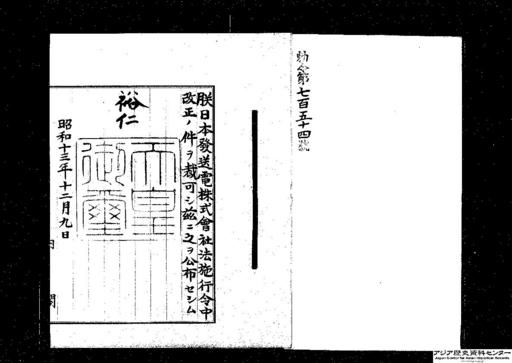 勅令第七百五十四號
朕日本發送電株式會社法施行令中
改正ノ件ヲ裁可シ茲ニ之ヲ公布セシム
裕仁
天皇御璽
昭和十三年十二月九日
内閣
アジア歴史資料センター
Japan Center for Asian Historical Records